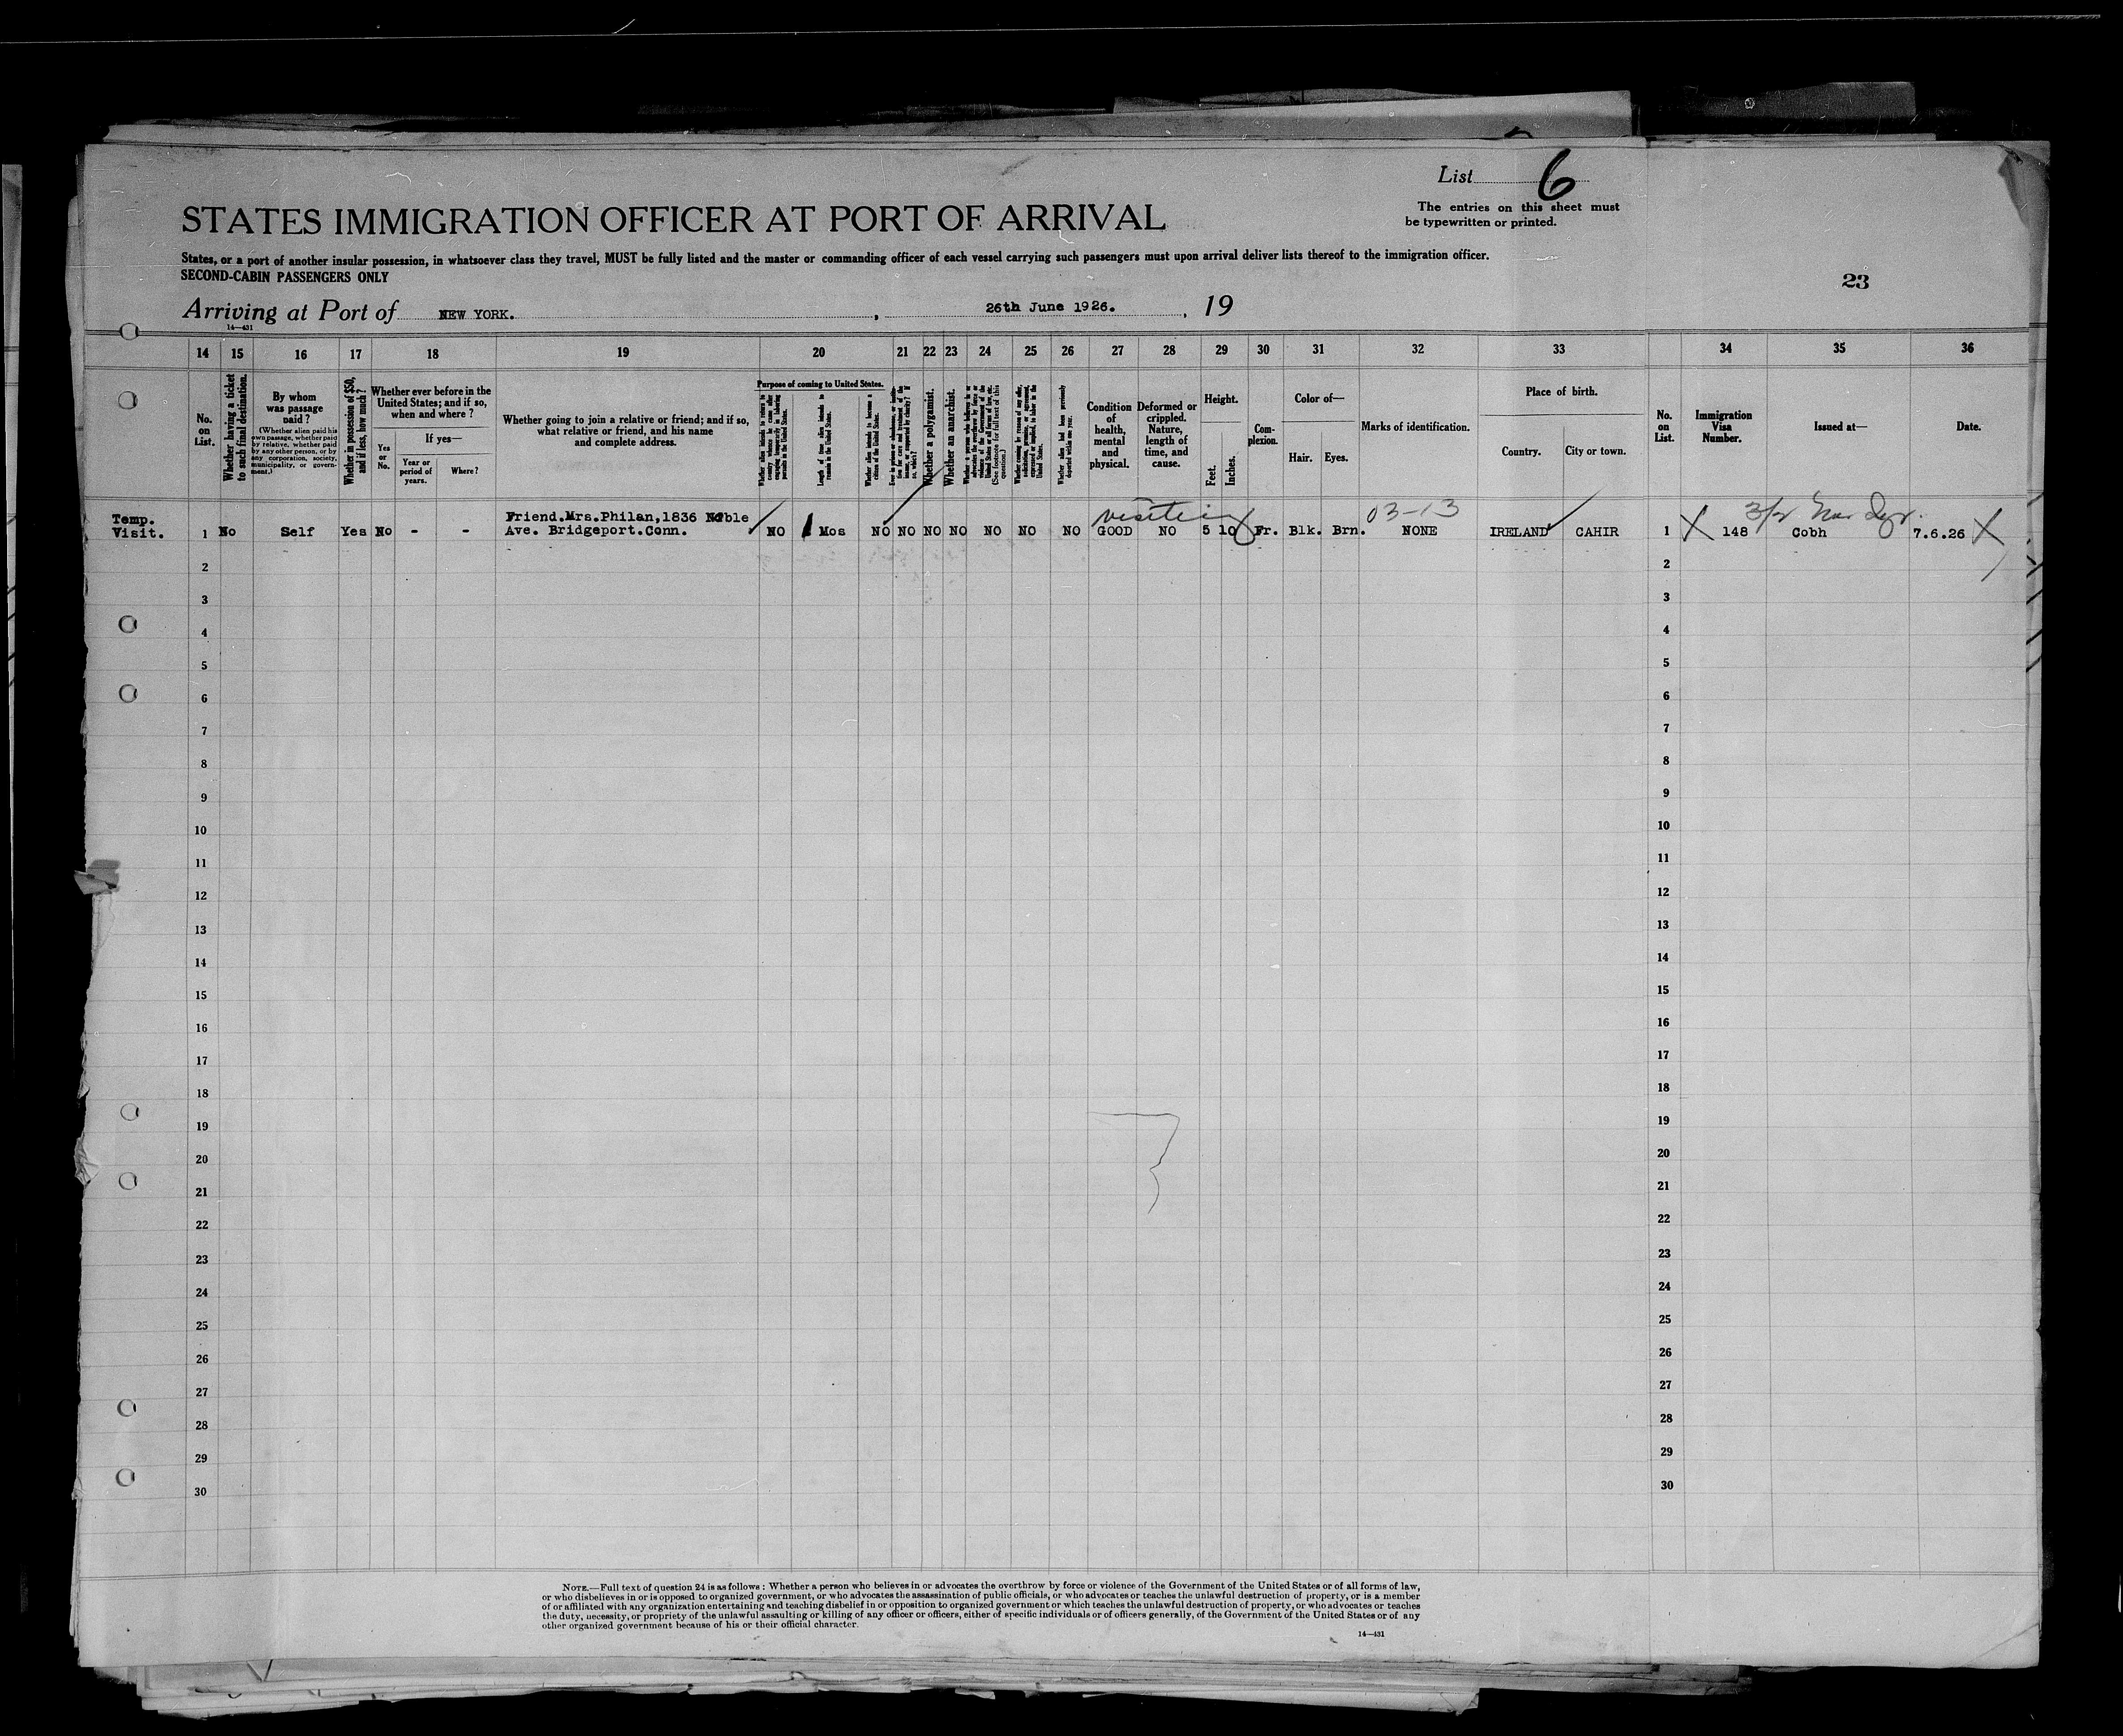 List 6
The entries on this sheet must
be typewritten or printed.
STATES IMMIGRATION OFFICER AT PORT OF ARRIVAL
States, or a port of another insular possession, in whatsoever class they travel, MUST be fully listed and the master or commanding officer of each vessel carrying such passengers must upon arrival deliver lists thereof to the immigration officer.
SECOND-CABIN PASSENGERS ONLY
23
Arriving at Port of NEW YORK. , 26th June 1926. , 19
14—431
14 15 16 17 18 19 20 21 22 23 24 25 26 27 28 29 30 31 32 33 34 35 36
No.
on
List.
Whether having a ticket
to such final destination.
By whom
was passage
paid?
(Whether alien paid his
own passage, whether paid
by relative, whether paid
by any other person, or by
any corporation, society,
municipality, or govern-
ment.)
Whether in possession of $50,
and if less, how much?
Whether ever before in the
United States; and if so,
when and where?
Yes
or
No.
If yes—
Year or
period of
years.
Where?
Whether going to join a relative or friend; and if so,
what relative or friend, and his name
and complete address.
Purpose of coming to United States.
Length of time alien intends to
remain in the United States.
Whether alien intends to become a
citizen of the United States.
Whether a polygamist.
Whether an anarchist.
(See footnote for full text of this
question.)
Whether alien had been previously
deported within one year.
Condition
of
health,
mental
and
physical.
Deformed or
crippled.
Nature,
length of
time, and
cause.
Height.
Feet.
Inches.
Com-
plexion.
Color of—
Hair.
Eyes.
Marks of identification.
Place of birth.
Country.
City or town.
No.
on
List.
Immigration
Visa
Number.
Issued at—
Date.
visiting
03-13
Temp.
Visit.
1 No Self Yes No - -
Friend.Mrs.Philan,1836 Noble
Ave. Bridgeport.Conn.
NO 1 Mos NO NO NO NO NO NO NO GOOD NO 5 10 Fr. Blk. Brn. NONE IRELAND CAHIR 1 148 Cobh 7.6.26
2 2
3 3
4 4
5 5
6 6
7 7
8 8
9 9
10 10
11 11
12 12
13 13
14 14
15 15
16 16
17 17
18 18
19 19
20 20
21 21
22 22
23 23
24 24
25 25
26 26
27 27
28 28
29 29
30 30
NOTE.—Full text of question 24 is as follows: Whether a person who believes in or advocates the overthrow by force or violence of the Government of the United States or of all forms of law,
or who disbelieves in or is opposed to organized government, or who advocates the assassination of public officials, or who advocates or teaches the unlawful destruction of property, or is a member
of or affiliated with any organization entertaining and teaching disbelief in or opposition to organized government or which teaches the unlawful destruction of property, or who advocates or teaches
the duty, necessity, or propriety of the unlawful assaulting or killing of any officer or officers, either of specific individuals or of officers generally, of the Government of the United States or of any
other organized government because of his or their official character.
14—431